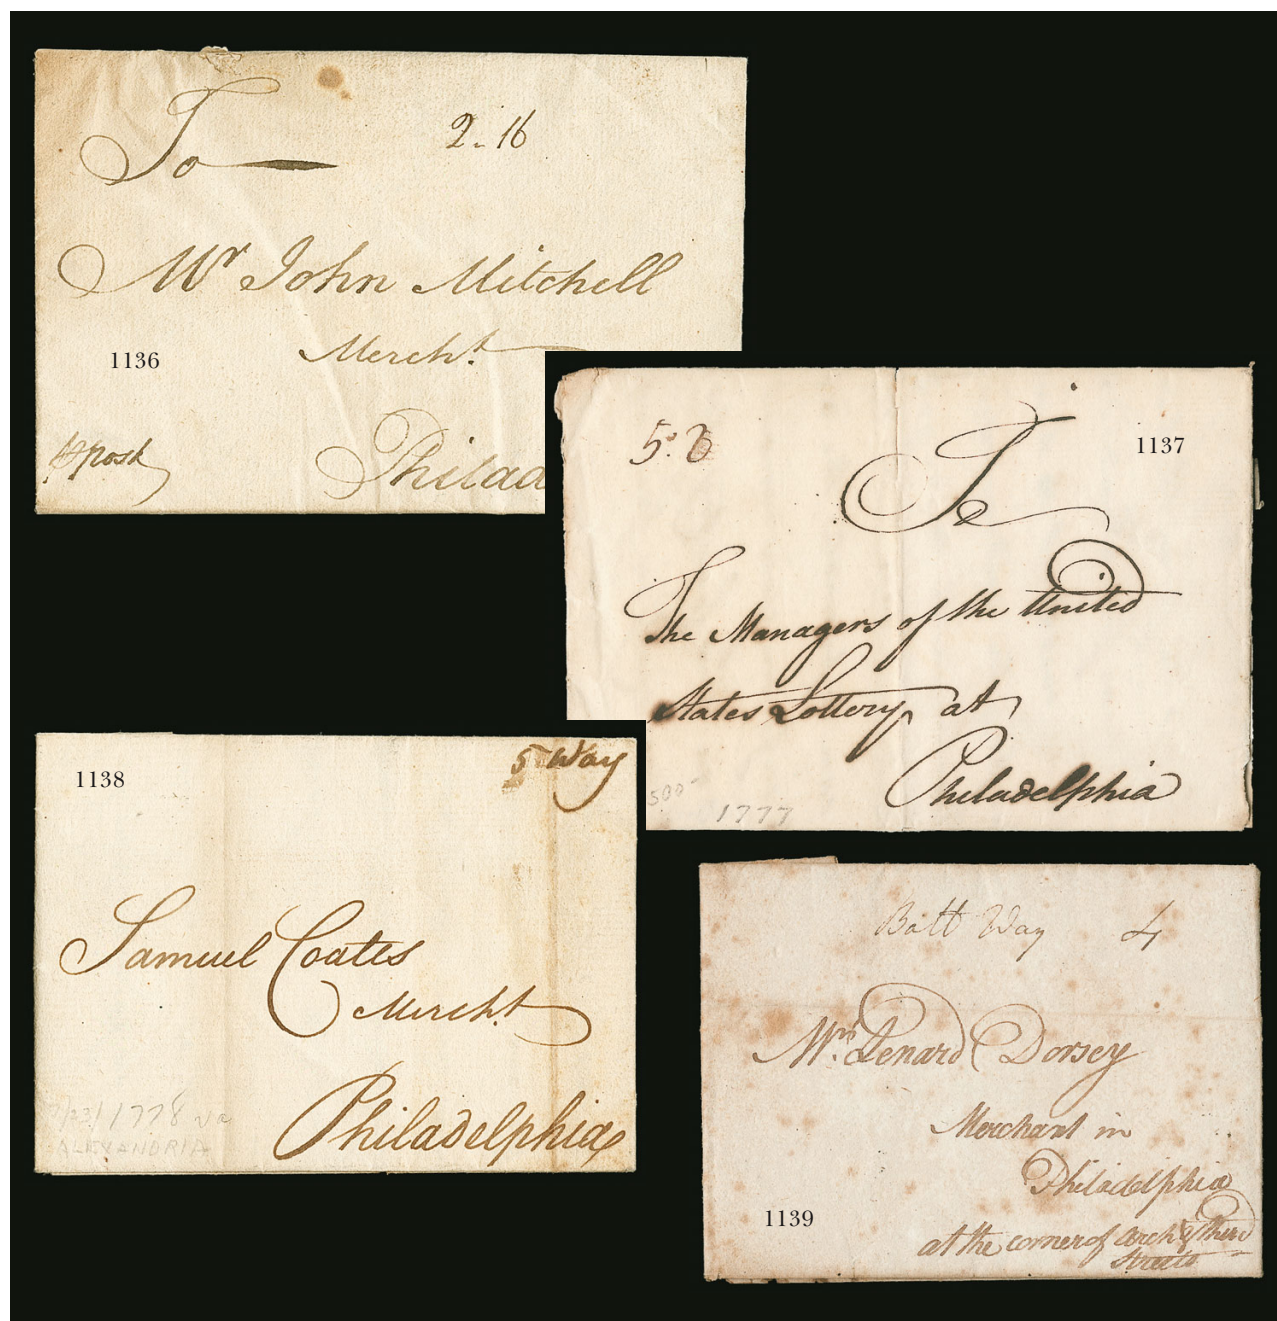 To
2. 16
Mr John Mitchell
Mercht.
1136
⅌ post
Philad
5:8
1137
To
The Managers of the United
States Lottery at
Philadelphia
500-
1777
1138
5 Way
Samuel Coates
Mercht.
Philadelphia
7/23/1778 va
ALEXANDRIA
Balt Way 4
Mr. Lenard Dorsey
Merchant in
Philadelphia
1139
at the corner of Arch & Third
Streets